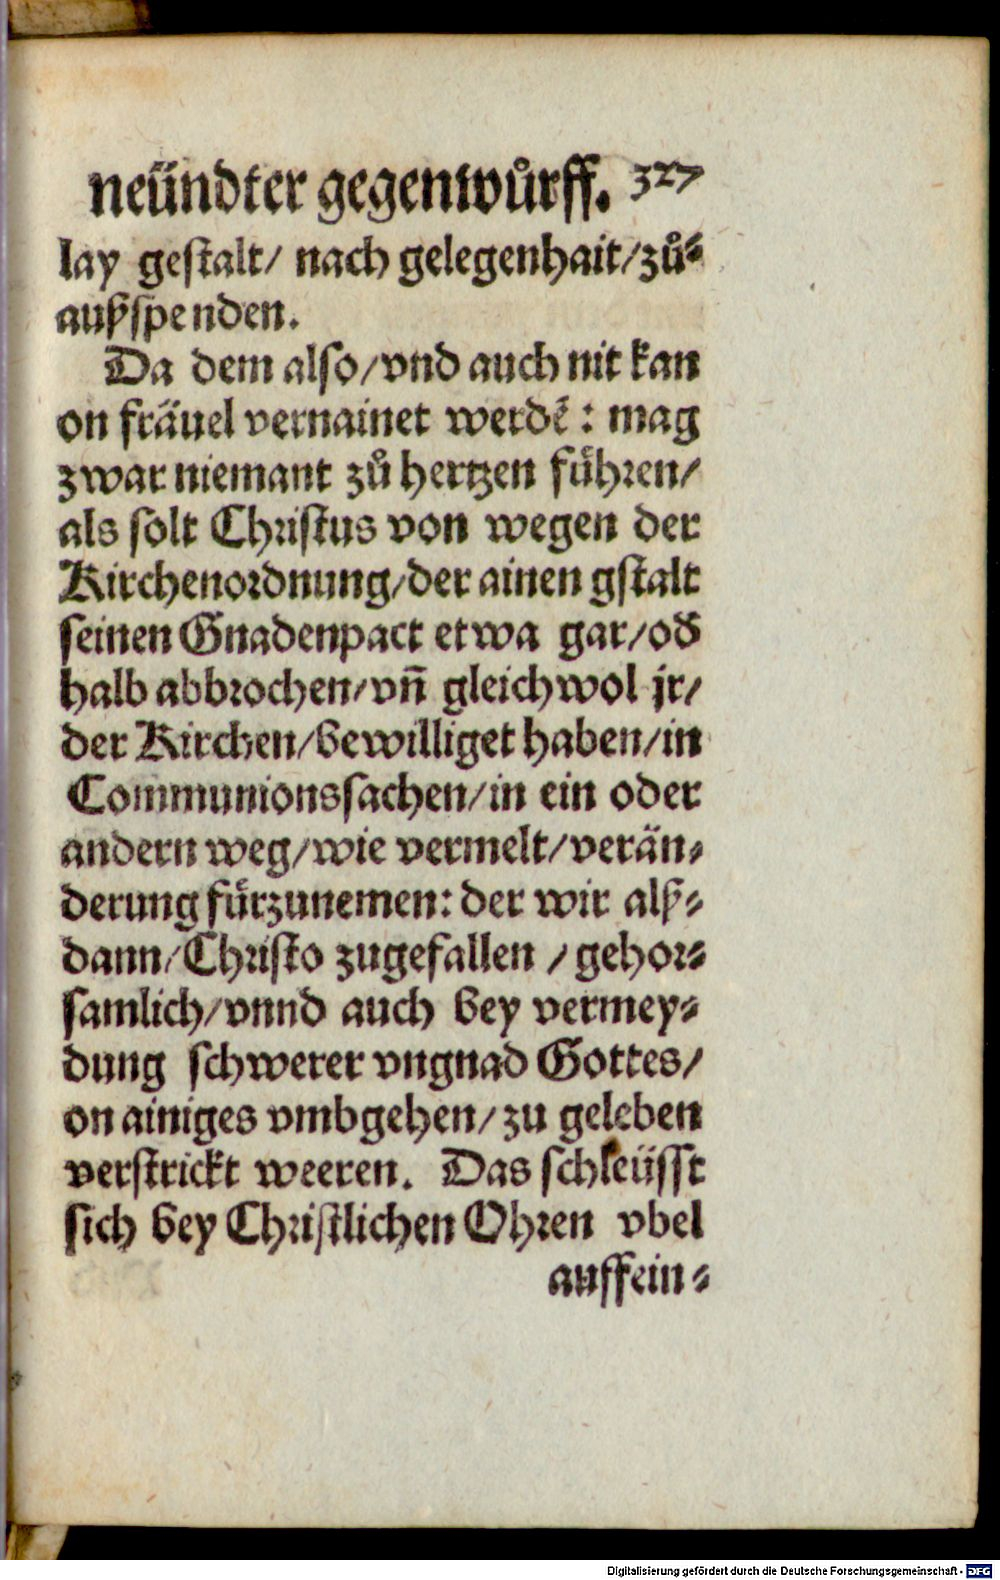 neündter gegenwůrff. 327
lay gestalt/ nach gelegenhait/zů⸗
außspenden.
Da dem also/vnd auch nit kan
on fräuel vernainet werdē: mag
zwar niemant zů hertzen führen/
als solt Christus von wegen der
Kirchenordnung/der ainen gstalt
seinen Gnadenpact etwa gar/od̕
halb abbrochen/vn̄ gleichwol jr/
der Kirchen/bewilliget haben/in
Communionssachen/in ein oder
andern weg/wie vermelt/verän⸗
derung fürzunemen: der wir alß⸗
dann/Christo zugefallen / gehor⸗
samlich/vnnd auch bey vermey⸗
dung schwerer vngnad Gottes/
on ainiges vmbgehen/zu geleben
verstrickt weeren. Das schleüsst
sich bey Christlichen Ohren vbel
auffein⸗
Digitalisierung gefördert durch die Deutsche Forschungsgemeinschaft - DFG